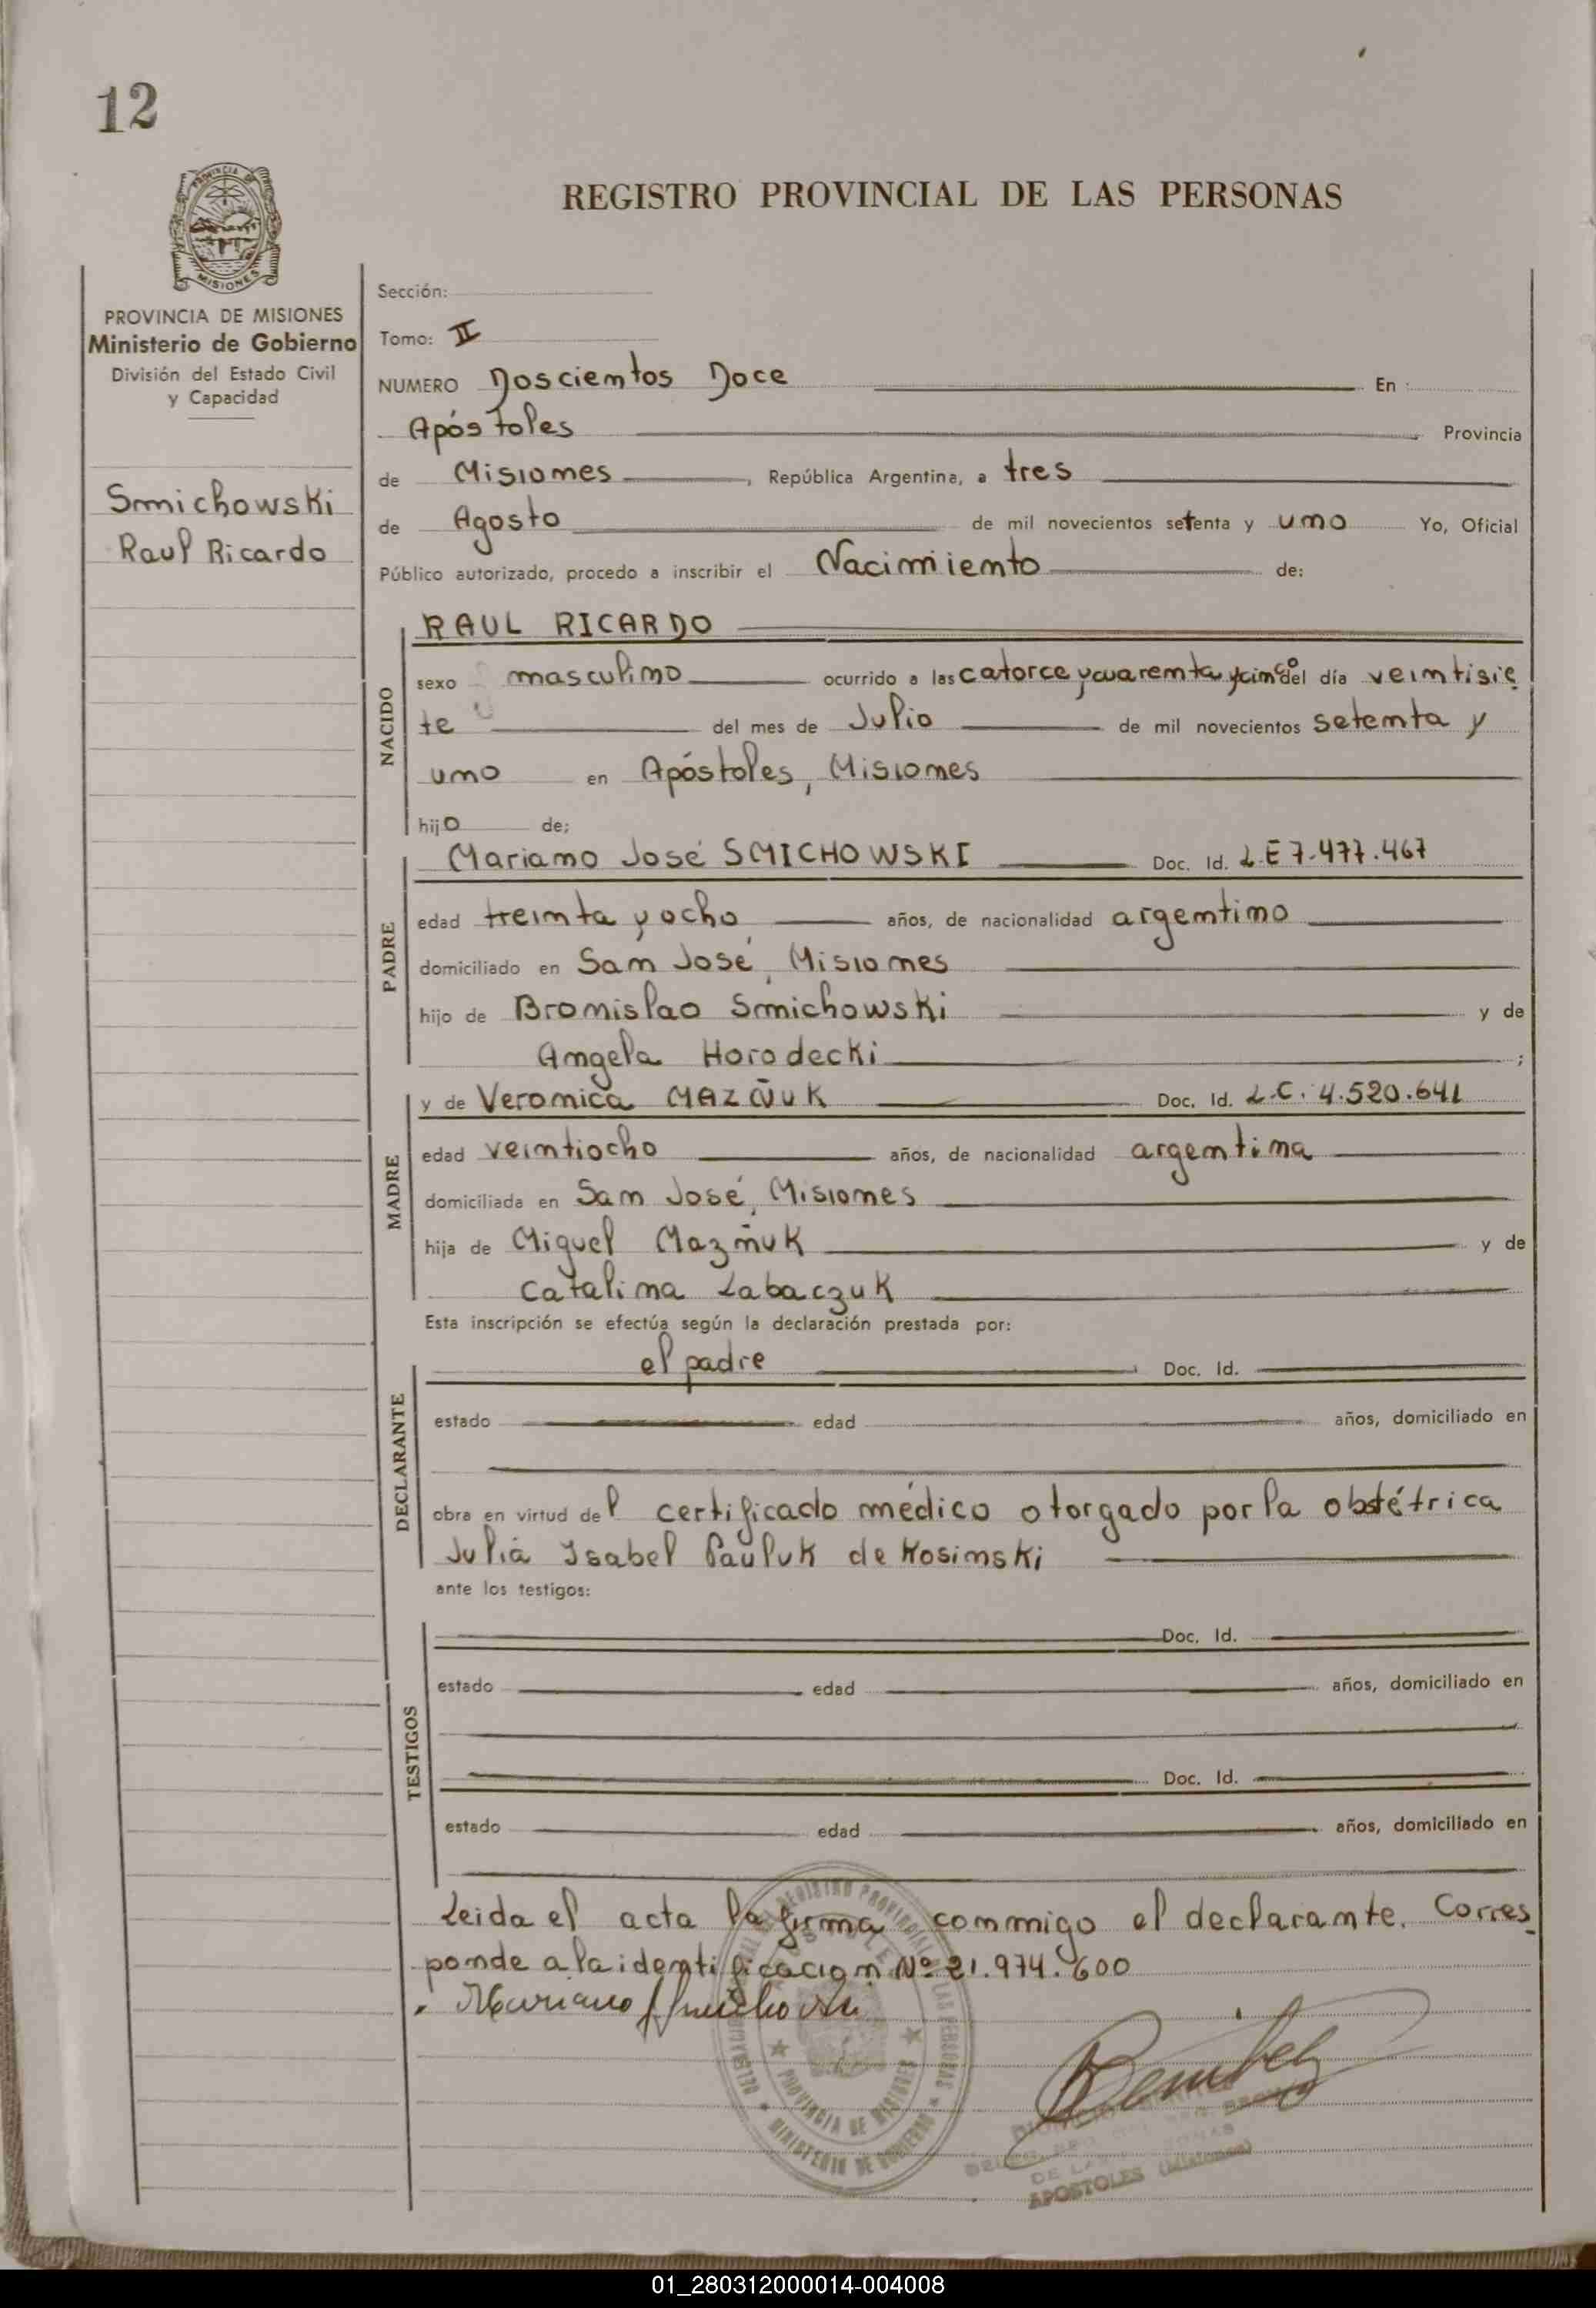 12
PROVINCIA DE
MISIONES
REGISTRO PROVINCIAL DE LAS PERSONAS
PROVINCIA DE MISIONES
Ministerio de Gobierno
División del Estado Civil
y Capacidad
Smichowski
Raul Ricardo
Sección:
Tomo: II
NUMERO Doscientos Doce En
Apóstoles Provincia
de Misiones, República Argentina, a tres
de Agosto de mil novecientos setenta y uno Yo, Oficial
Público autorizado, procedo a inscribir el Nacimiento de:
NACIDO
RAUL RICARDO
sexo masculino ocurrido a las catorce y cuarenta y cinco del día veintisie
te del mes de Julio de mil novecientos setenta y
uno en Apóstoles, Misiones
hijo de;
PADRE
Mariano José SMICHOWSKI Doc. Id. L.E 7.477.467
edad treinta y ocho años, de nacionalidad argentino
domiciliado en San José, Misiones
hijo de Bronislao Smichowski y de
Angela Horodecki ;
MADRE
y de Veronica MAZÑUK Doc. Id. L.C. 4.520.641
edad veintiocho años, de nacionalidad argentina
domiciliada en San José, Misiones
hija de Miguel Mazñuk y de
Catalina Labaczuk
Esta inscripción se efectúa según la declaración prestada por:
DECLARANTE
el padre Doc. Id.
estado edad años, domiciliado en
obra en virtud del certificado médico otorgado por la obstétrica
Julia Isabel Pauluk de Kosinski
ante los testigos:
TESTIGOS
Doc. Id.
estado edad años, domiciliado en
Doc. Id.
estado edad años, domiciliado en
Leida el acta la firma conmigo el declarante. Corres
ponde a la identificacion Nº 21.974.600
Mariano J Smichowski
REGISTRO PROVINCIAL DE LAS PERSONAS
PROVINCIA DE MISIONES
MINISTERIO DE GOBIERNO
APOSTOLES (Misiones)
01_280312000014-004008